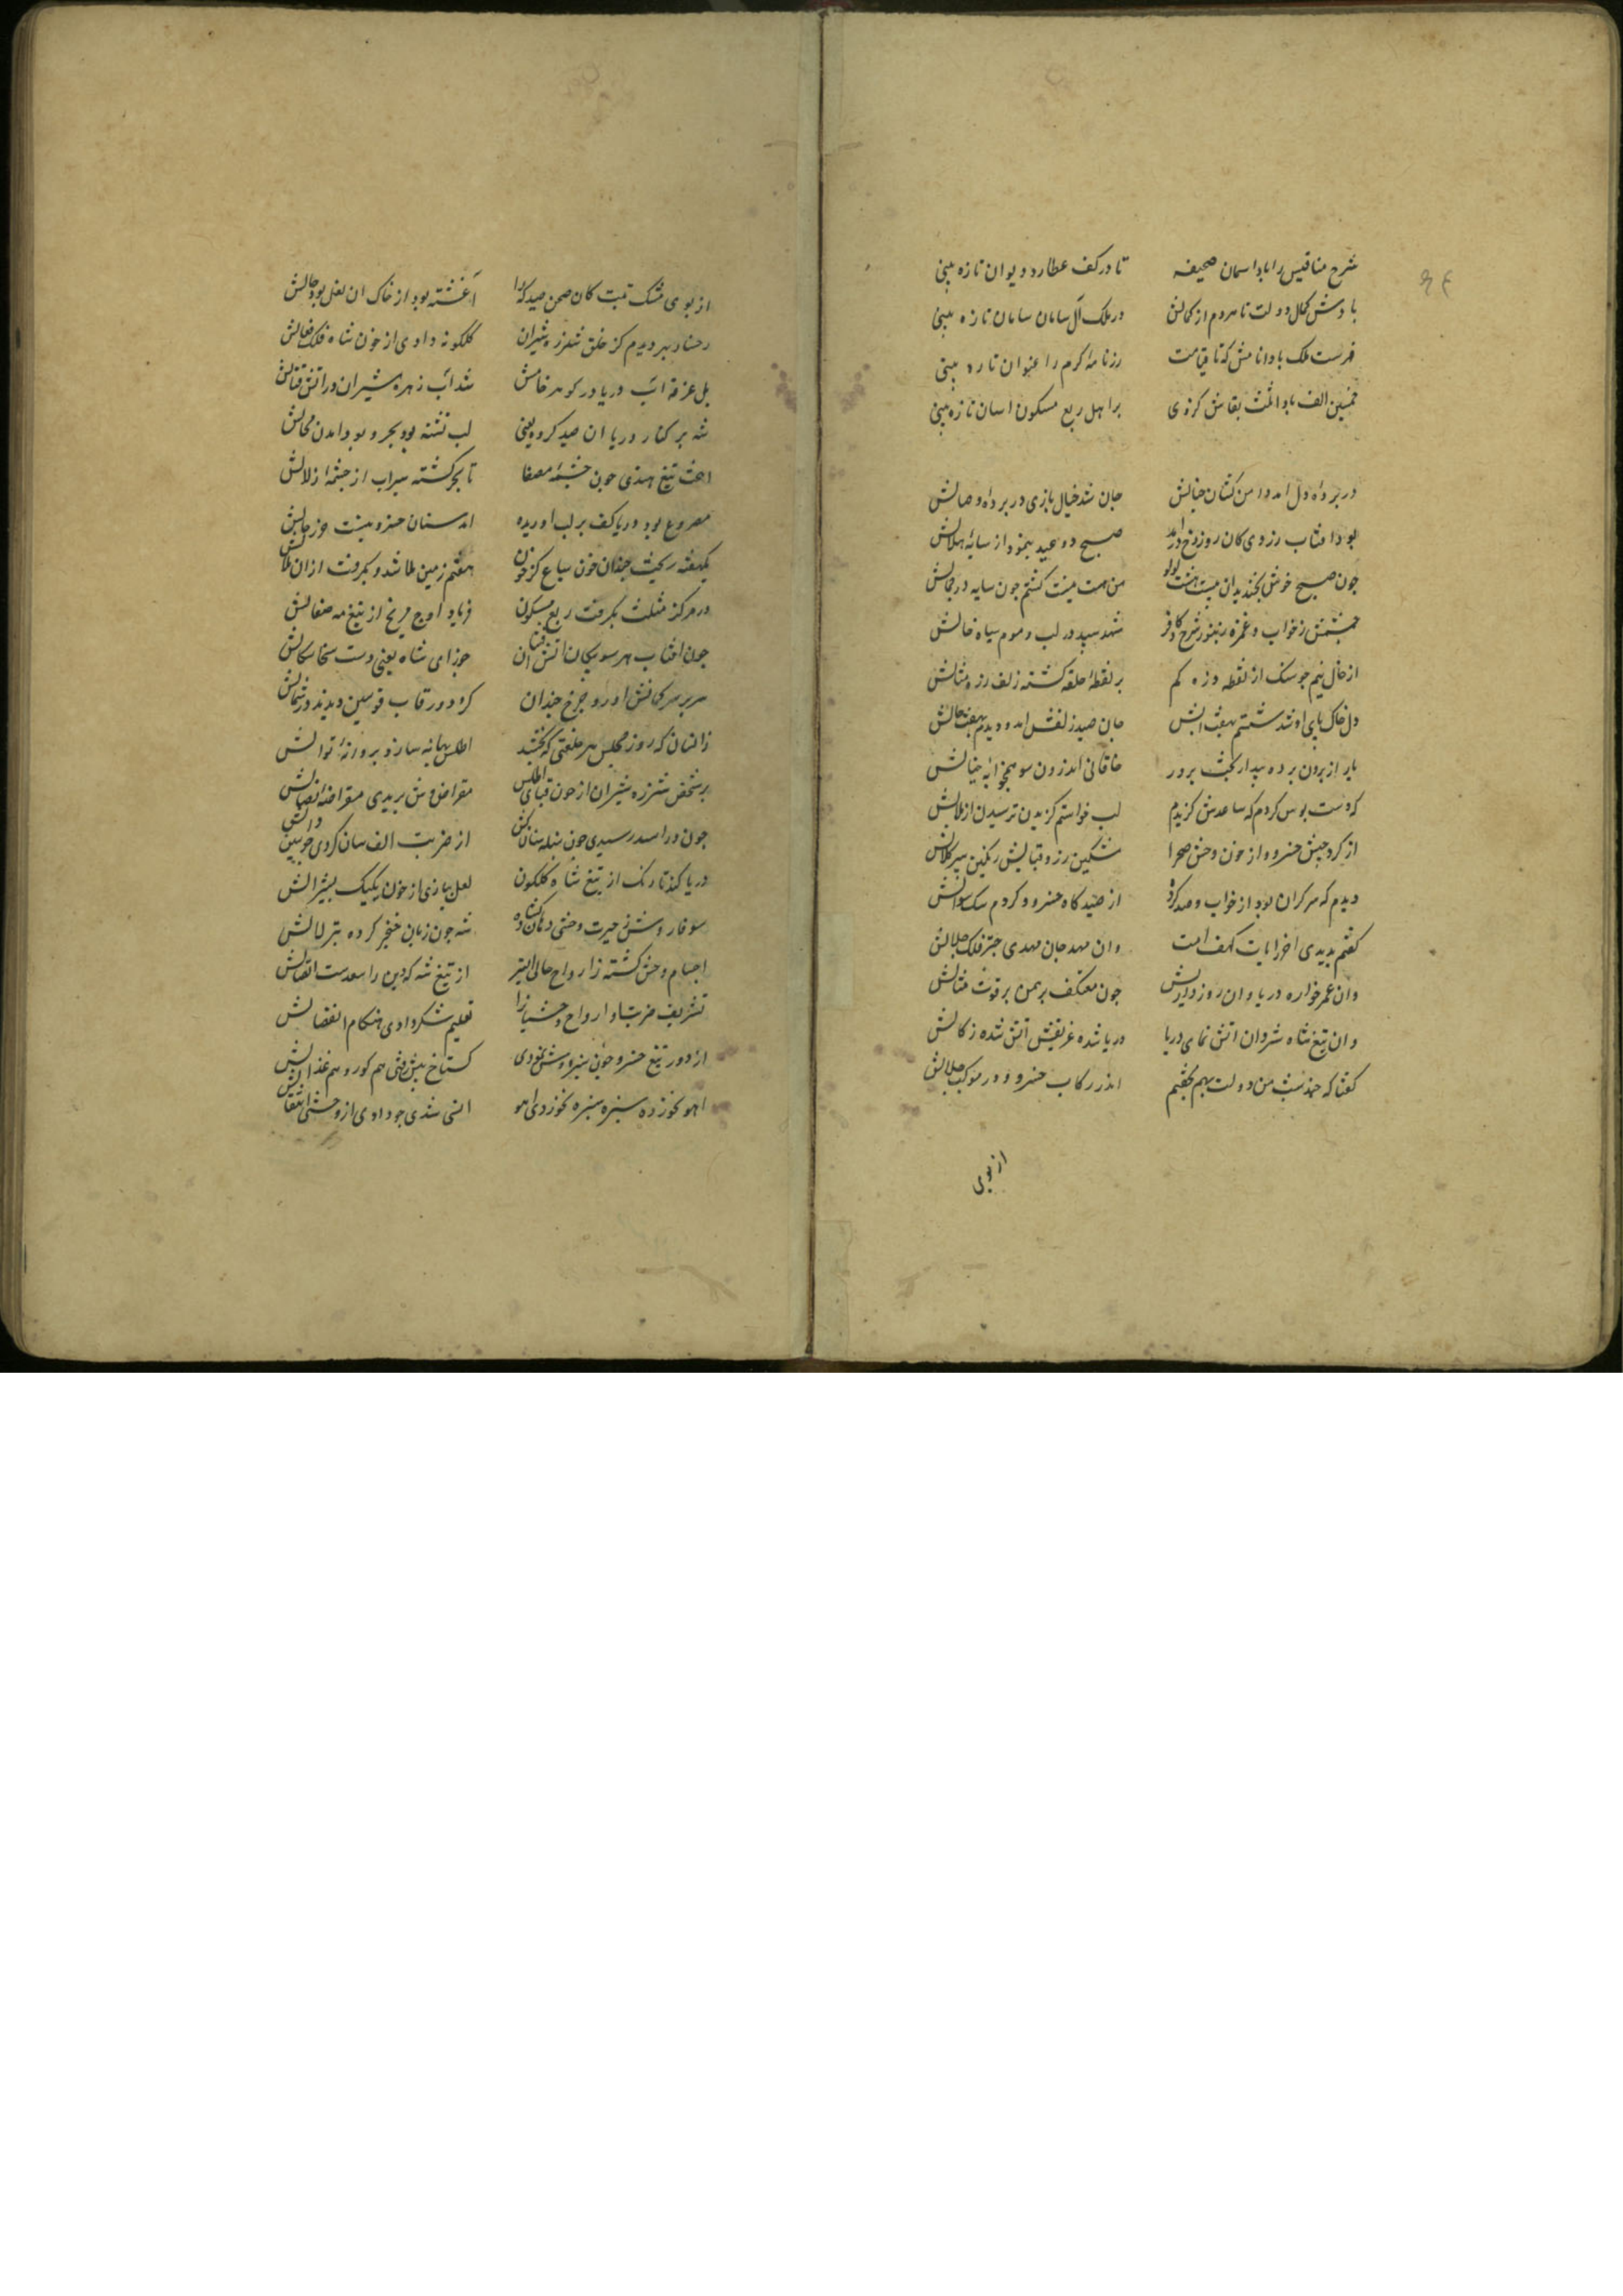 شرح مناقبش را بادا سمان صحیفه تا در کف عطارد دیوان تازه بینی
بادش کمال دولت تا هر دم از کمالش در ملک آل سامان سامان تازه بینی
فهرست ملک بادا نامش که تا قیامت رزنامه کرم را عنوان تازه بینی
خمسین الف بادا ثلث بقاش کز وی بر اهل ربع مسکون احسان تازه بینی
در پرده دل امد دامن کشان خیالش جان شد خیال بازی در پرده وصالش
بود افتاب زردی کان روز رخ درامد صبح دو عید بنمود از سایه هلالش
چون صبح خوش بخندید ان بیست هشت لولو من هست نیست کشتم چون سایه در جمالش
چشمش ز خواب و غمزه زنبور سرخ کافر شهد سپید در لب و موم سیاه خالش
از خال نیم جو سنک از نقطه ذره کم بر نقطه حلقه کشته زلف زره مثالش
دل خاک پای او شد شستم بهفت ابش جان صید زلفش امد دیدم بهفت حالش
یار از برون پرده بیدار بخت بر در خاقانی اندرون سو همخوابه خیالش
که دست بوس کردم که ساعدش کزیدم لب خواستم کزیدن ترسیدم از ملالش
از کرد جیش خسرو و از خون وحش صحرا مشکین زره قبایش رنکین سپر کلالش
دیدم که سر کران بود از خواب و صید کرده از صید کاه خسرو کردم سبک سوالش
کفتم بدیدی اخر ایات کهف امت وان مهد جان مهدی چتر فلک جلالش
وان عمر خواره دریا وان روزه دار اتش چون معتکف برهمن برقوت
وان تیغ شاه شروان اتش نمای دریا دریا شده غریقش اتش شده زکالش
کفتا که چند شب من و دولت بهم بخفتیم اندر رکاب خسرو در موکب جلالش
از بوی
از بوی مشک تبت کان صحن صیدکه را اغشته بود از خاک ان لعل بود جالش
رخسار ببر دیدم کز خلق شرزه شیران کلکونه دادی از خون شاه فلک فعالش
بل غرقه اب دریا در کوهر شد اب زهره شیران در اتش قتالش
شه بر کنار دریا ان صید کرد یعنی لب تشنه بود بحر و بود امدن محالش
اخت تیغ هندی چون چشمه مصفا تا بحر کشته سیراب از چشمه زلالش
مصروع بود دریا کف بر لب اوریده امد سنان خسرو بنبشت حرز حالش
یکهفته ریخت چندان خون سباع کز خون هفتم زمین ملا شد و بکرفت ازان ملالش
در مرکز مثلث بکرفت ربع مسکون فریاد اوج مریخ از تیغ مه صقالش
چون افتاب هر سو پیکان اتش افشان جوزای شاه یعنی دست سخا سکالش
سر بر سر کمانش اورد چرخ چندان کز دور قاب قوسین دیدند در شمالش
زانسان که روز مجلس بر خلعتی که بخشد اطلس بهانه سازد پروانه نوالش
بر شخص شرزه شیران از خون قبای اطلس مقراض وش بریدی مقراضه نصالش
چون در اسد رسیدی چون سنبله سنان کش از ضربت الف سان کردی چو سین و دالش
دریا کند تا رنک از تیغ شاه کلکون لعل پیازی از خون یکیک پشیزالش
سوفار وش ز حیرت وحشی دهان کشاده شه چون زبان خنجر کرده بتیر لالش
اجسام وحش کشته زارواح خالی ایرا از تیغ شه که دین را سعدست اتصالش
تشریف ضربت او ارواح وحشیانرا تعلیم شکر دادی هنکام انفصالش
از دور تیغ خسرو چون سبزه وش نمودی کستاخ پیش رفتی هم کور و هم غزالش
اهو نخورده سبزه سبزه بخوردی اهو انسی شدی چو دادی از وحشی انتقالش